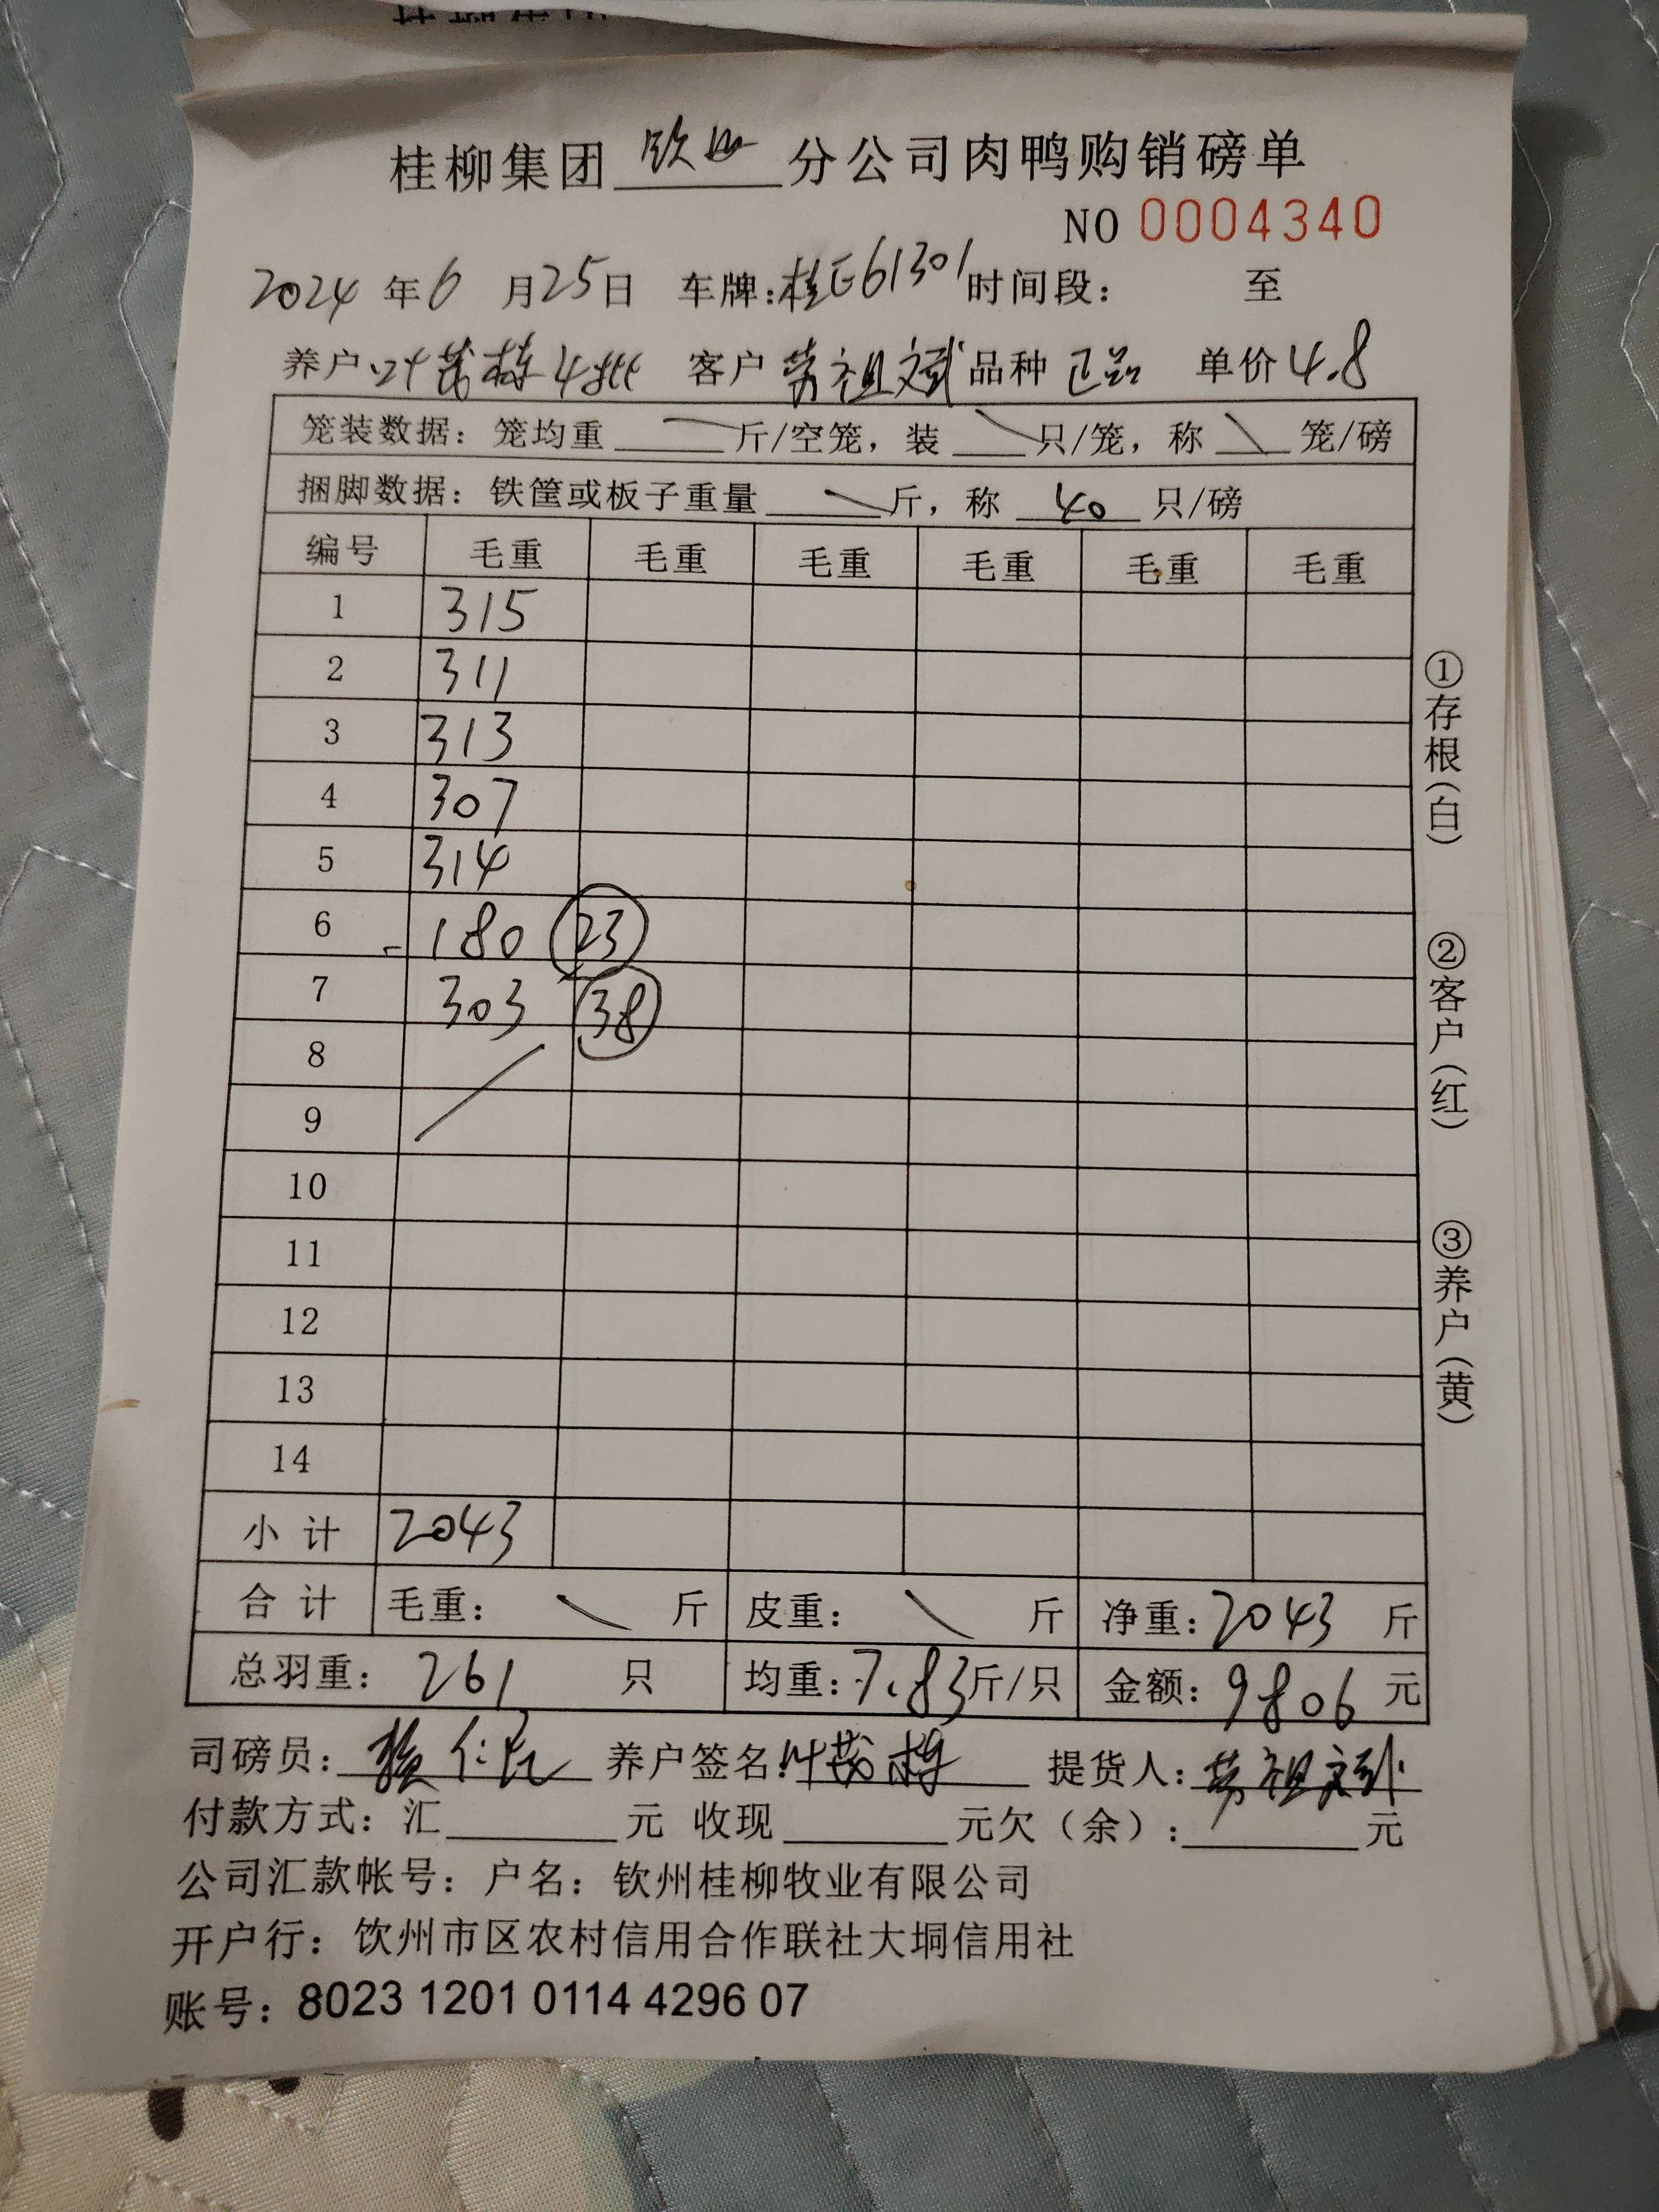 桂柳集团 钦州 分公司肉鸭购销磅单
NO 0004340
2024 年 6 月 25 日 车牌：桂E61301 时间段： 至
养户 叶茂栋4批 客户 劳祖斌 品种 正品 单价 4.8
笼装数据：笼均重 斤/空笼，装 只/笼，称 笼/磅
捆脚数据：铁筐或板子重量 斤，称 40 只/磅
编号 毛重 毛重 毛重 毛重 毛重 毛重
1 315
2 311
3 313
4 307
5 314
6 180 23
7 303 38
8
9
10
11
12
13
14
小计 2043
合计 毛重： 斤 皮重： 斤 净重：2043 斤
总羽重： 261 只 均重：7.83 斤/只 金额：9806 元
司磅员： 养户签名：叶茂栋 提货人：劳祖斌
付款方式：汇 元 收现 元欠（余）： 元
公司汇款帐号：户名：钦州桂柳牧业有限公司
开户行：钦州市区农村信用合作联社大垌信用社
账号：8023 1201 0114 4296 07
①存根（白）
②客户（红）
③养户（黄）